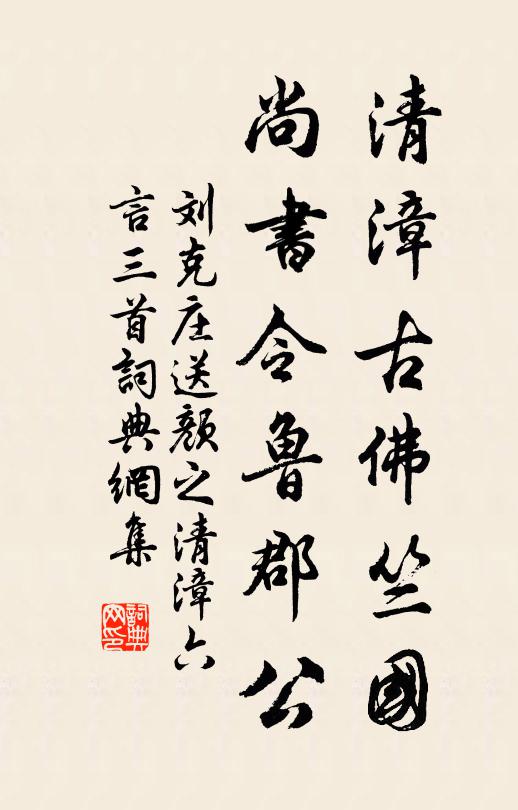 清漳古佛竺國
尚書令魯郡公
刘克庄送顏之清漳六
言三首詞典網集
詞典网印